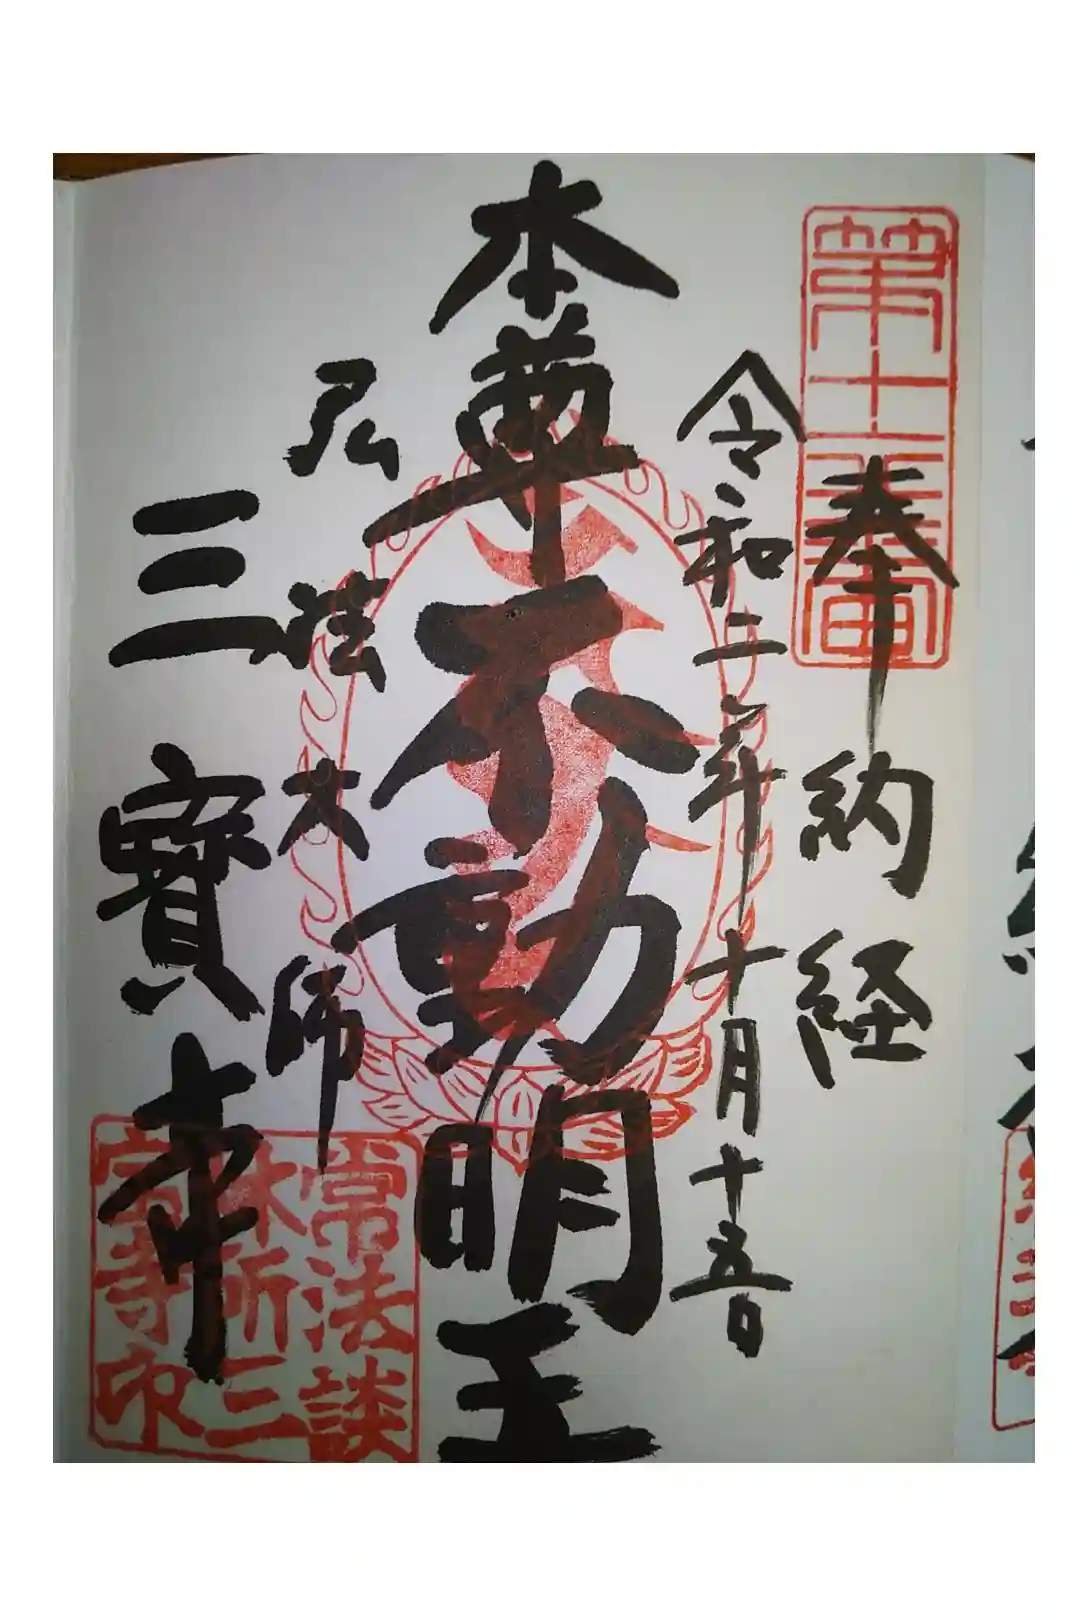 奉納経
令和二年十月十五日
本尊不動明王
弘法大師
三寳寺
常法談
林所三
宝寺印